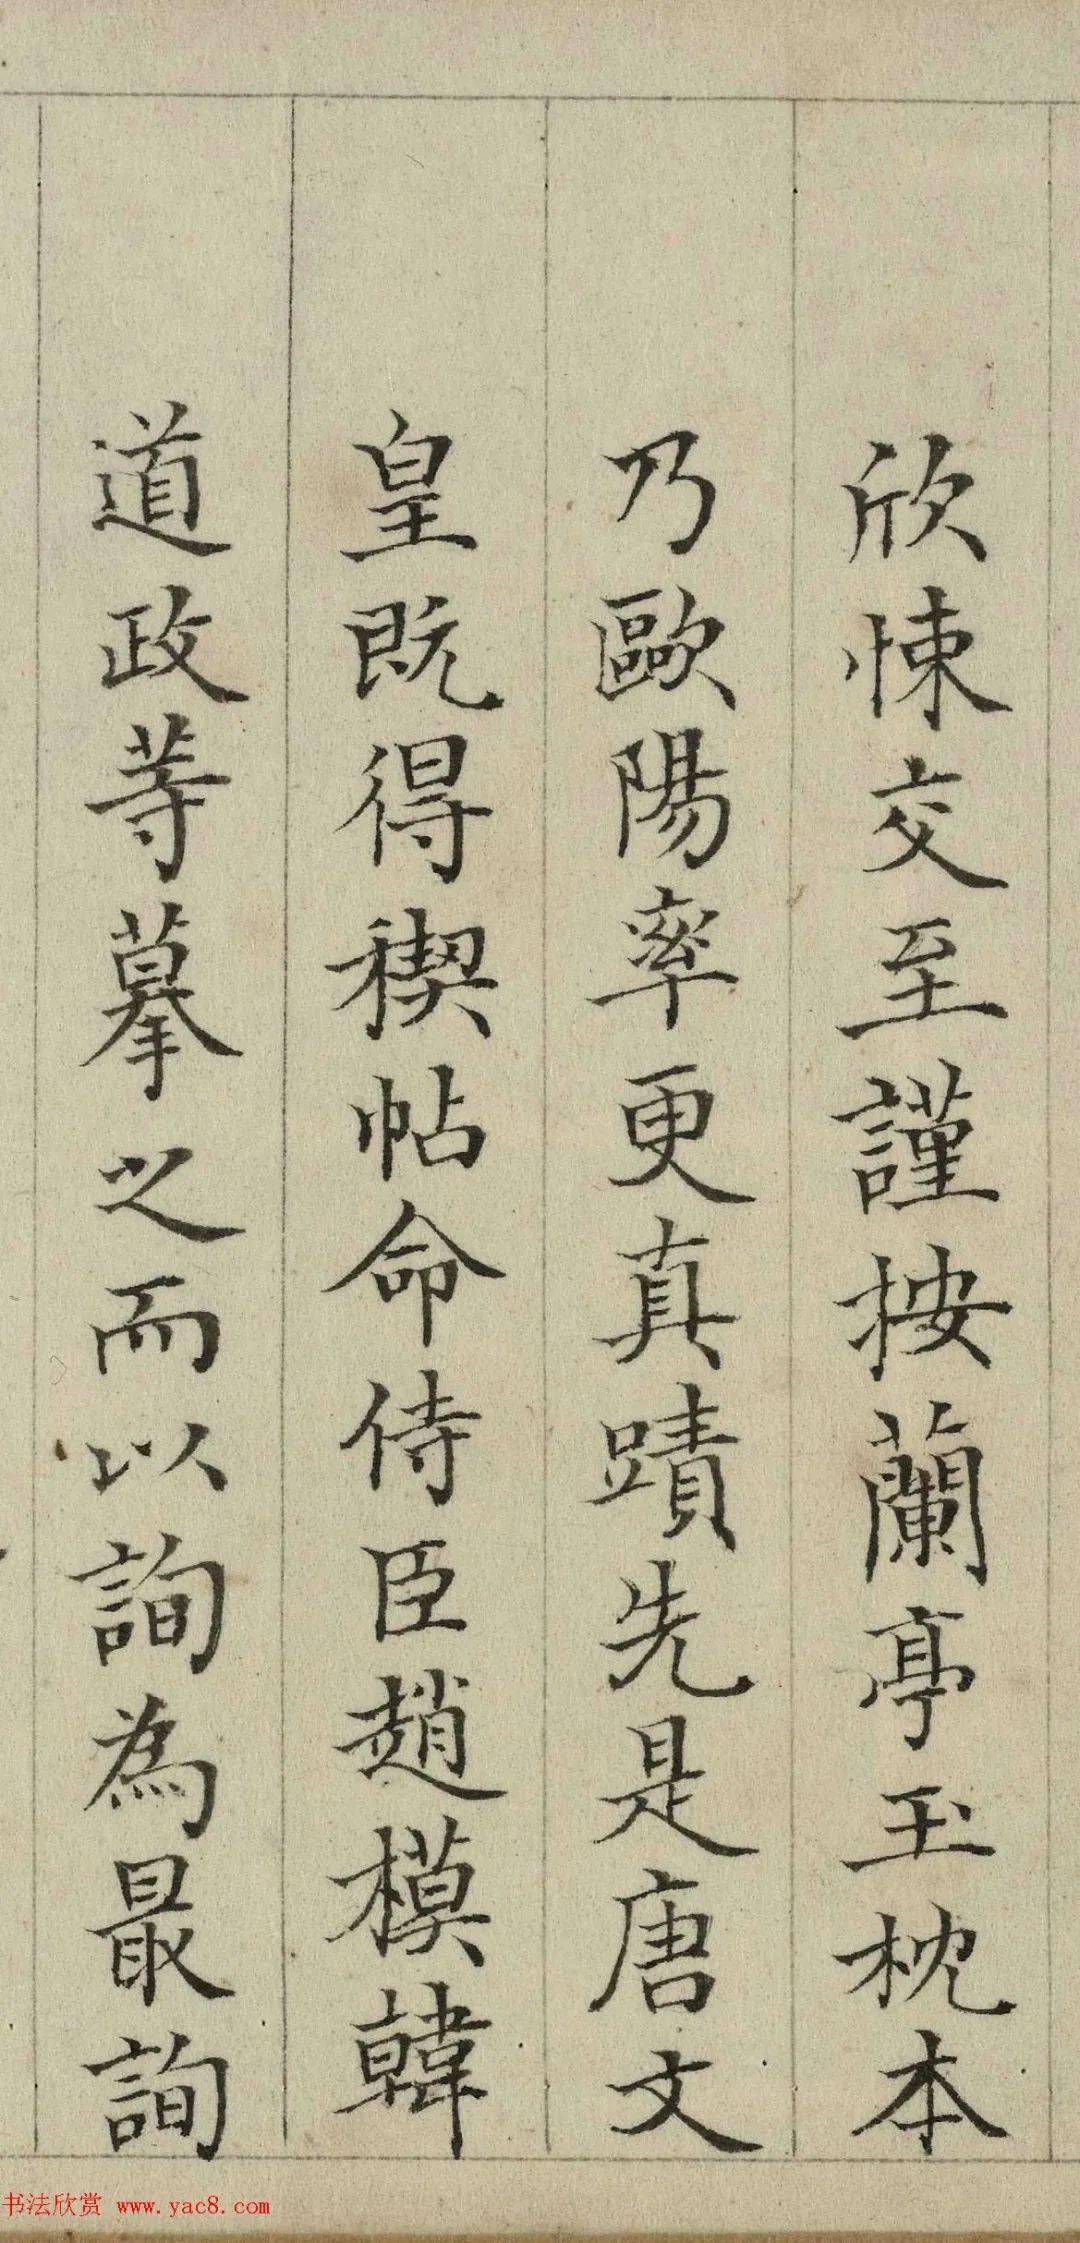 欣悚交至謹按蘭亭玉枕本
乃歐陽率更真蹟先是唐文
皇既得禊帖命侍臣趙模韓
道政等摹之而以詢為最詢
书法欣赏 www.yac8.com